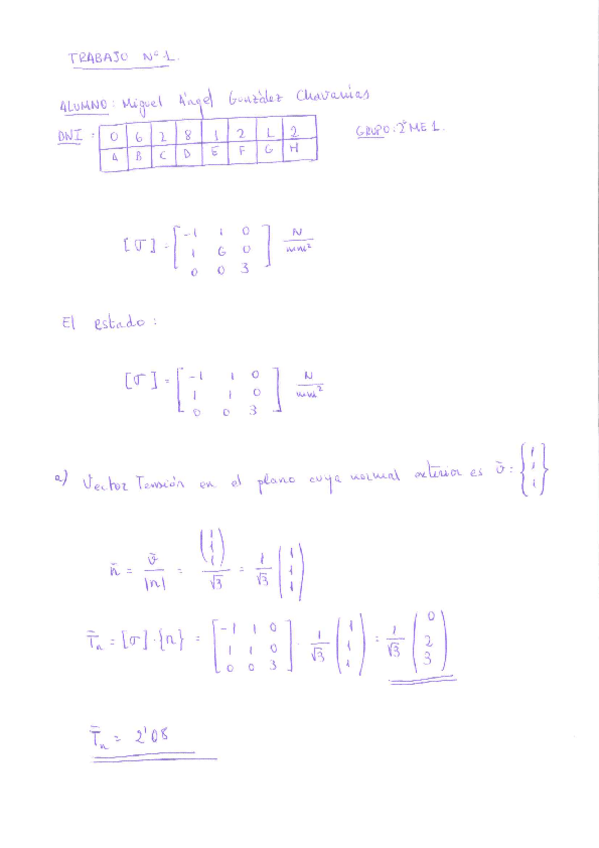 TRABAJO Nº 1.
ALUMNO: Miguel Ángel González Chavarrías
DNI = 0 6 2 8 1 2 L 2 GRUPO: 2º ME 1.
A B C D E F G H
[σ] = [-1 1 0; 1 6 0; 0 0 3] N/mm²
El estado:
[σ] = [-1 1 0; 1 1 0; 0 0 3] N/mm²
a) Vector Tensión en el plano cuya normal exterior es v̄: {1 1 1}
n̄ = v̄/|n| = (1 1 1)/√3 = 1/√3 (1 1 1)
T̄n = [σ]·{n} = [-1 1 0; 1 1 0; 0 0 3] · 1/√3 (1 1 1) = 1/√3 (0 2 3)
T̄n = 2'08